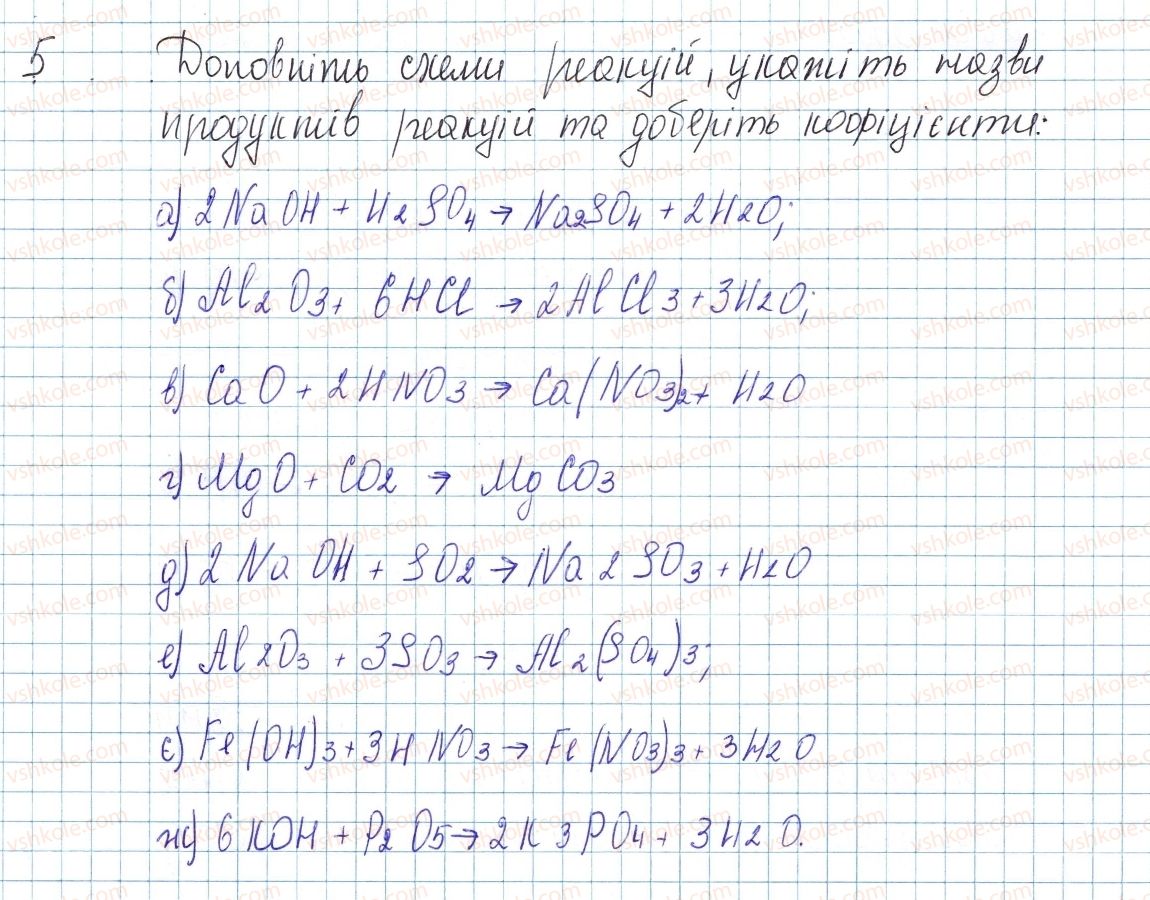 5 Доповніть схеми реакцій, укажіть назви
продуктів реакцій та доберіть коофіцієнти:
а) 2NaOH + H2SO4 → Na2SO4 + 2H2O;
б) Al2O3 + 6HCl → 2AlCl3 + 3H2O;
в) CaO + 2HNO3 → Ca(NO3)2 + H2O
г) MgO + CO2 → MgCO3
д) 2NaOH + SO2 → Na2SO3 + H2O
е) Al2O3 + 3SO3 → Al2(SO4)3;
є) Fe(OH)3 + 3HNO3 → Fe(NO3)3 + 3H2O
ж) 6KOH + P2O5 → 2K3PO4 + 3H2O.